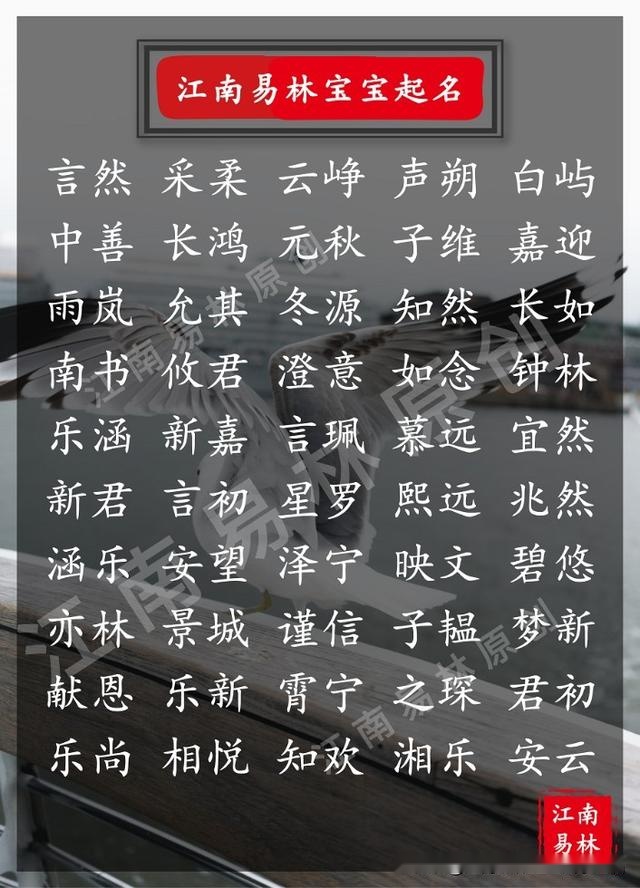 江南易林宝宝起名
言然 采柔 云峥 声朔 白屿
中善 长鸿 元秋 子维 嘉迎
雨岚 允其 冬源 知然 长如
南书 攸君 澄意 如念 钟林
乐涵 新嘉 言珮 慕远 宜然
新君 言初 星罗 熙远 兆然
涵乐 安望 泽宁 映文 碧悠
亦林 景城 谨信 子韫 梦新
献恩 乐新 霄宁 之琛 君初
乐尚 相悦 知欢 湘乐 安云
江南易林原创
江南易林原创
江南易林原创
江南
易林